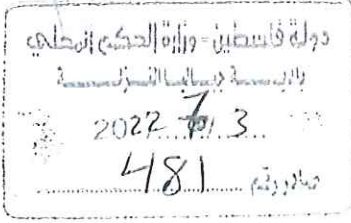 دولة فلسطين - وزارة الحكم المحلي
2022 7 3
صادر رقم 481